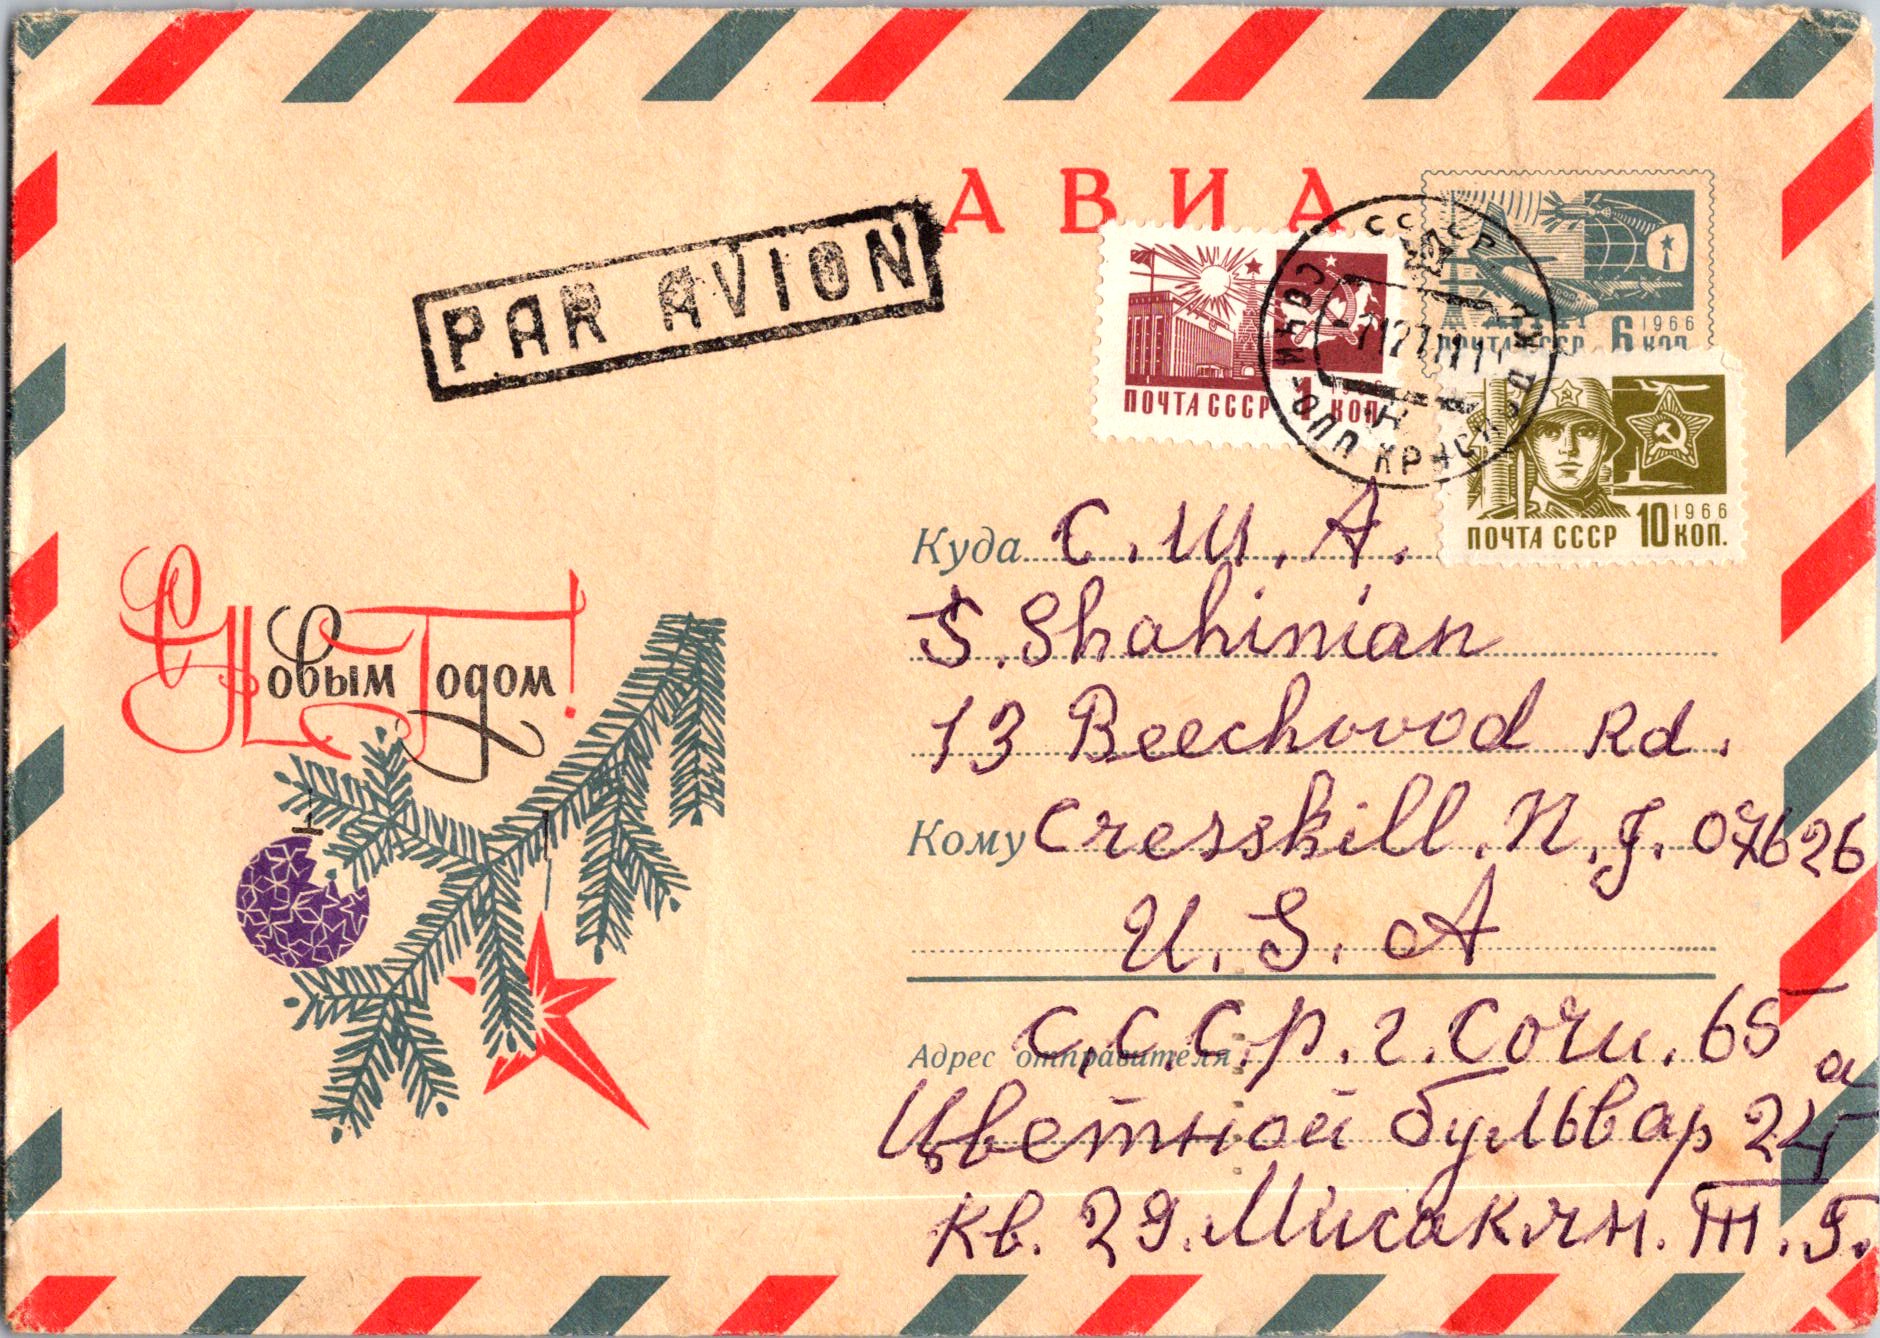 АВИА
PAR AVION
ПОЧТА СССР 1 КОП.
1966
ПОЧТА СССР 6 КОП.
СССР
СОЧИ
1966
ПОЧТА СССР 10 КОП.
С Новым Годом!
Куда С.Ш.А.
S. Shahinian
13 Beechwood Rd.
Кому Cresskill. N.J. 07626
U.S.A
Адрес отправителя С.С.С.р. г. Сочи. 65
Цветной бульвар 24 а
кв. 29. Мисакян. Т. Г.